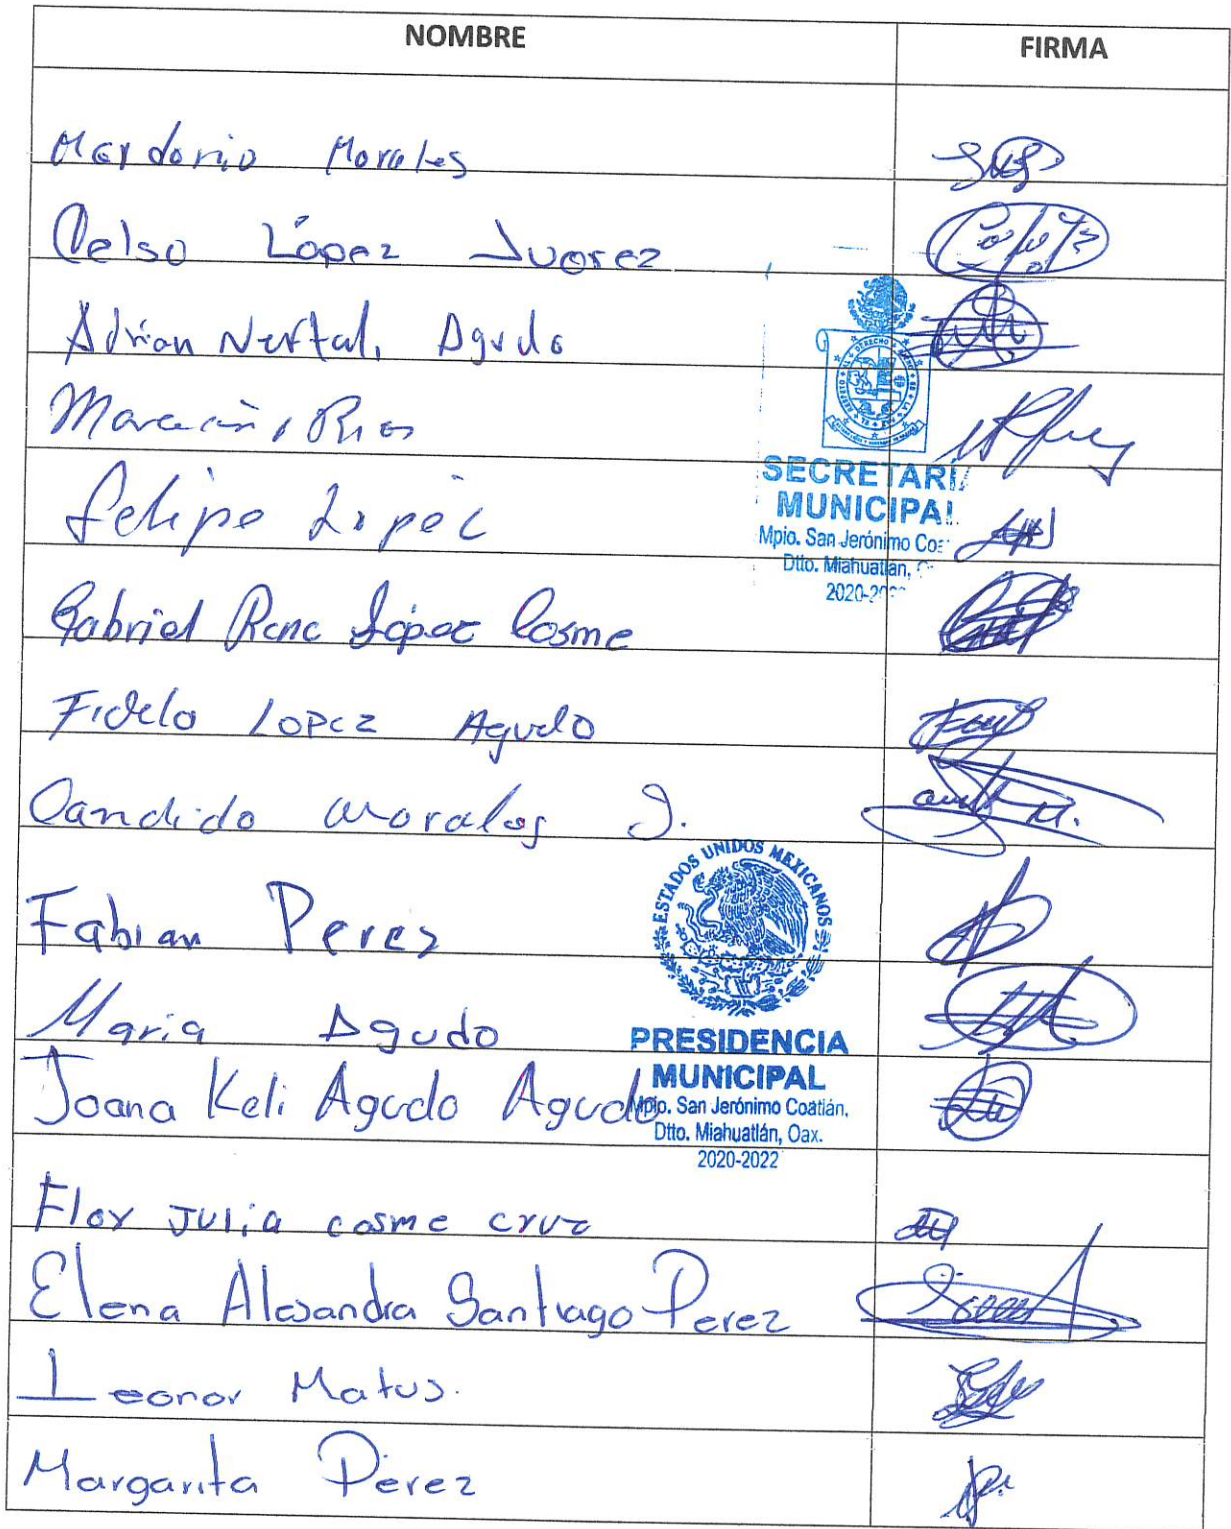 NOMBRE FIRMA
Mardonio Morales
Celso López Juarez
Adrian Neftali Agudo
Marcelino Rios
Felipe López
Gabriel Rene López Cosme
Fidelo Lopez Agudo
Candido Morales J.
Fabian Perez
Maria Agudo
Joana Keli Agudo Agudo
Flor Julia cosme cruz
Elena Alexandra Santiago Perez
Leonor Matus.
Margarita Pérez
SECRETARÍA
MUNICIPAL
Mpio. San Jerónimo
Dtto. Miahuatlan,
2020-
ESTADOS UNIDOS MEXICANOS
PRESIDENCIA
MUNICIPAL
Mpio. San Jerónimo Coatlán,
Dtto. Miahuatlán, Oax.
2020-2022